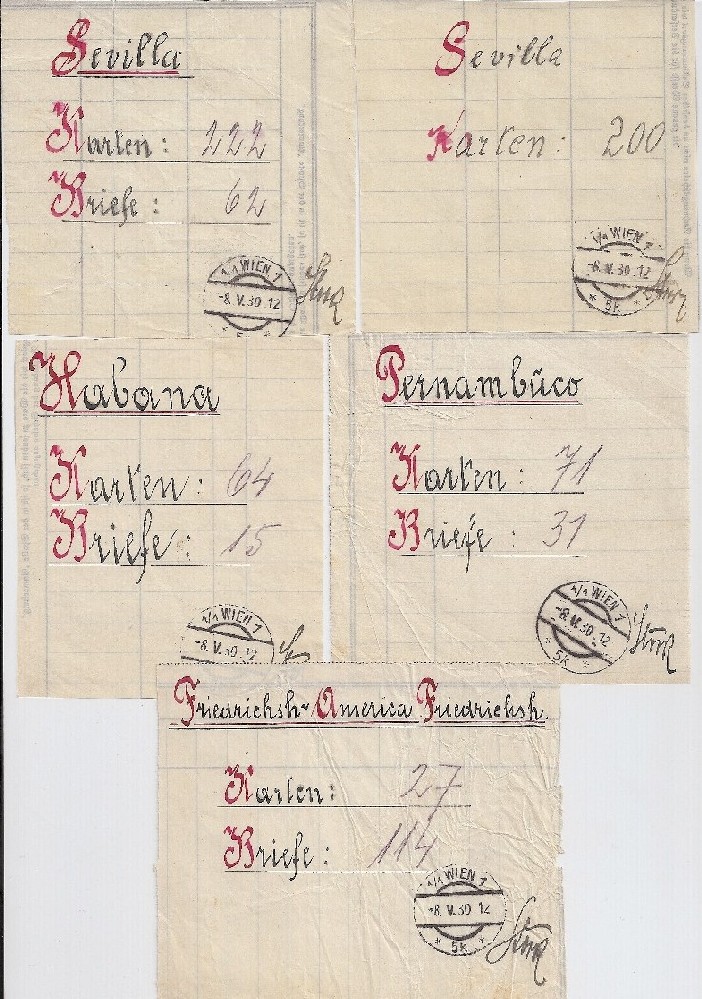 Sevilla
Karten: 222
Briefe: 62
1/1 WIEN 1
-8.V.30 12
5k
Sevilla
Karten: 200
1/1 WIEN 1
-8.V.30 12
* 5k *
Habana
Karten: 64
Briefe: 15
1/1 WIEN 1
-8.V.30 12
Pernambūco
Karten: 71
Briefe: 31
1/1 WIEN 1
-8.V.30 12
* 5k *
Friedrichsh- America Friedrichsh.
Karten: 27
Briefe: 114
1/1 WIEN 1
-8.V.30 12
* 5k *